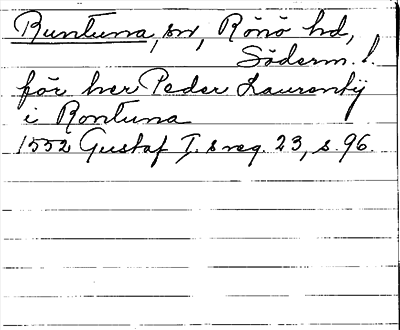 Runtuna, sn, Rönö hd,
Söderm. l.
för her Peder Laurentÿ
i Rontuna
1552 Gustaf I.s reg. 23, s. 96.